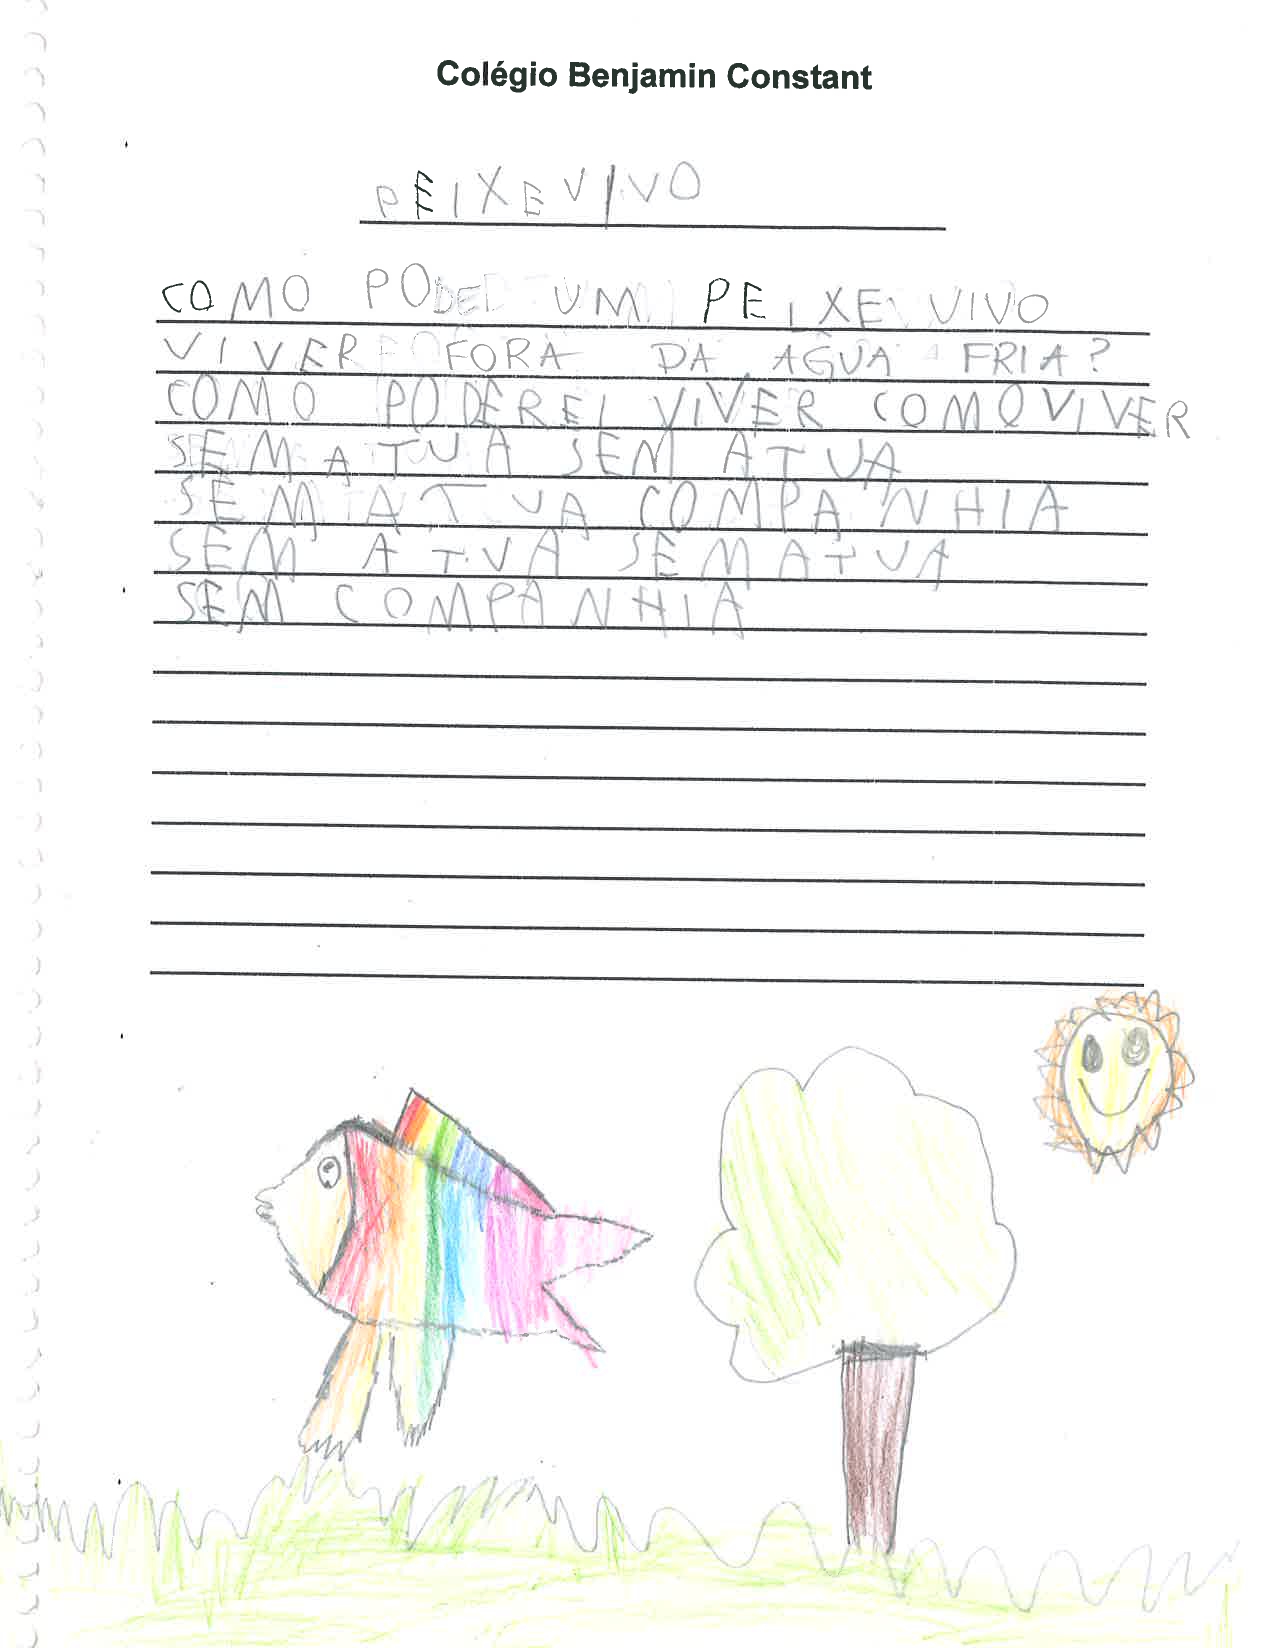 Colégio Benjamin Constant
PEIXE VIVO
COMO PODE UM PEIXE VIVO
VIVER FORA DA ÁGUA FRIA?
COMO PODEREI VIVER COMO VIVER
SEM A TUA SEM A TUA
SEM A TUA COMPANHIA
SEM A TUA SEM A TUA
SEM COMPANHIA